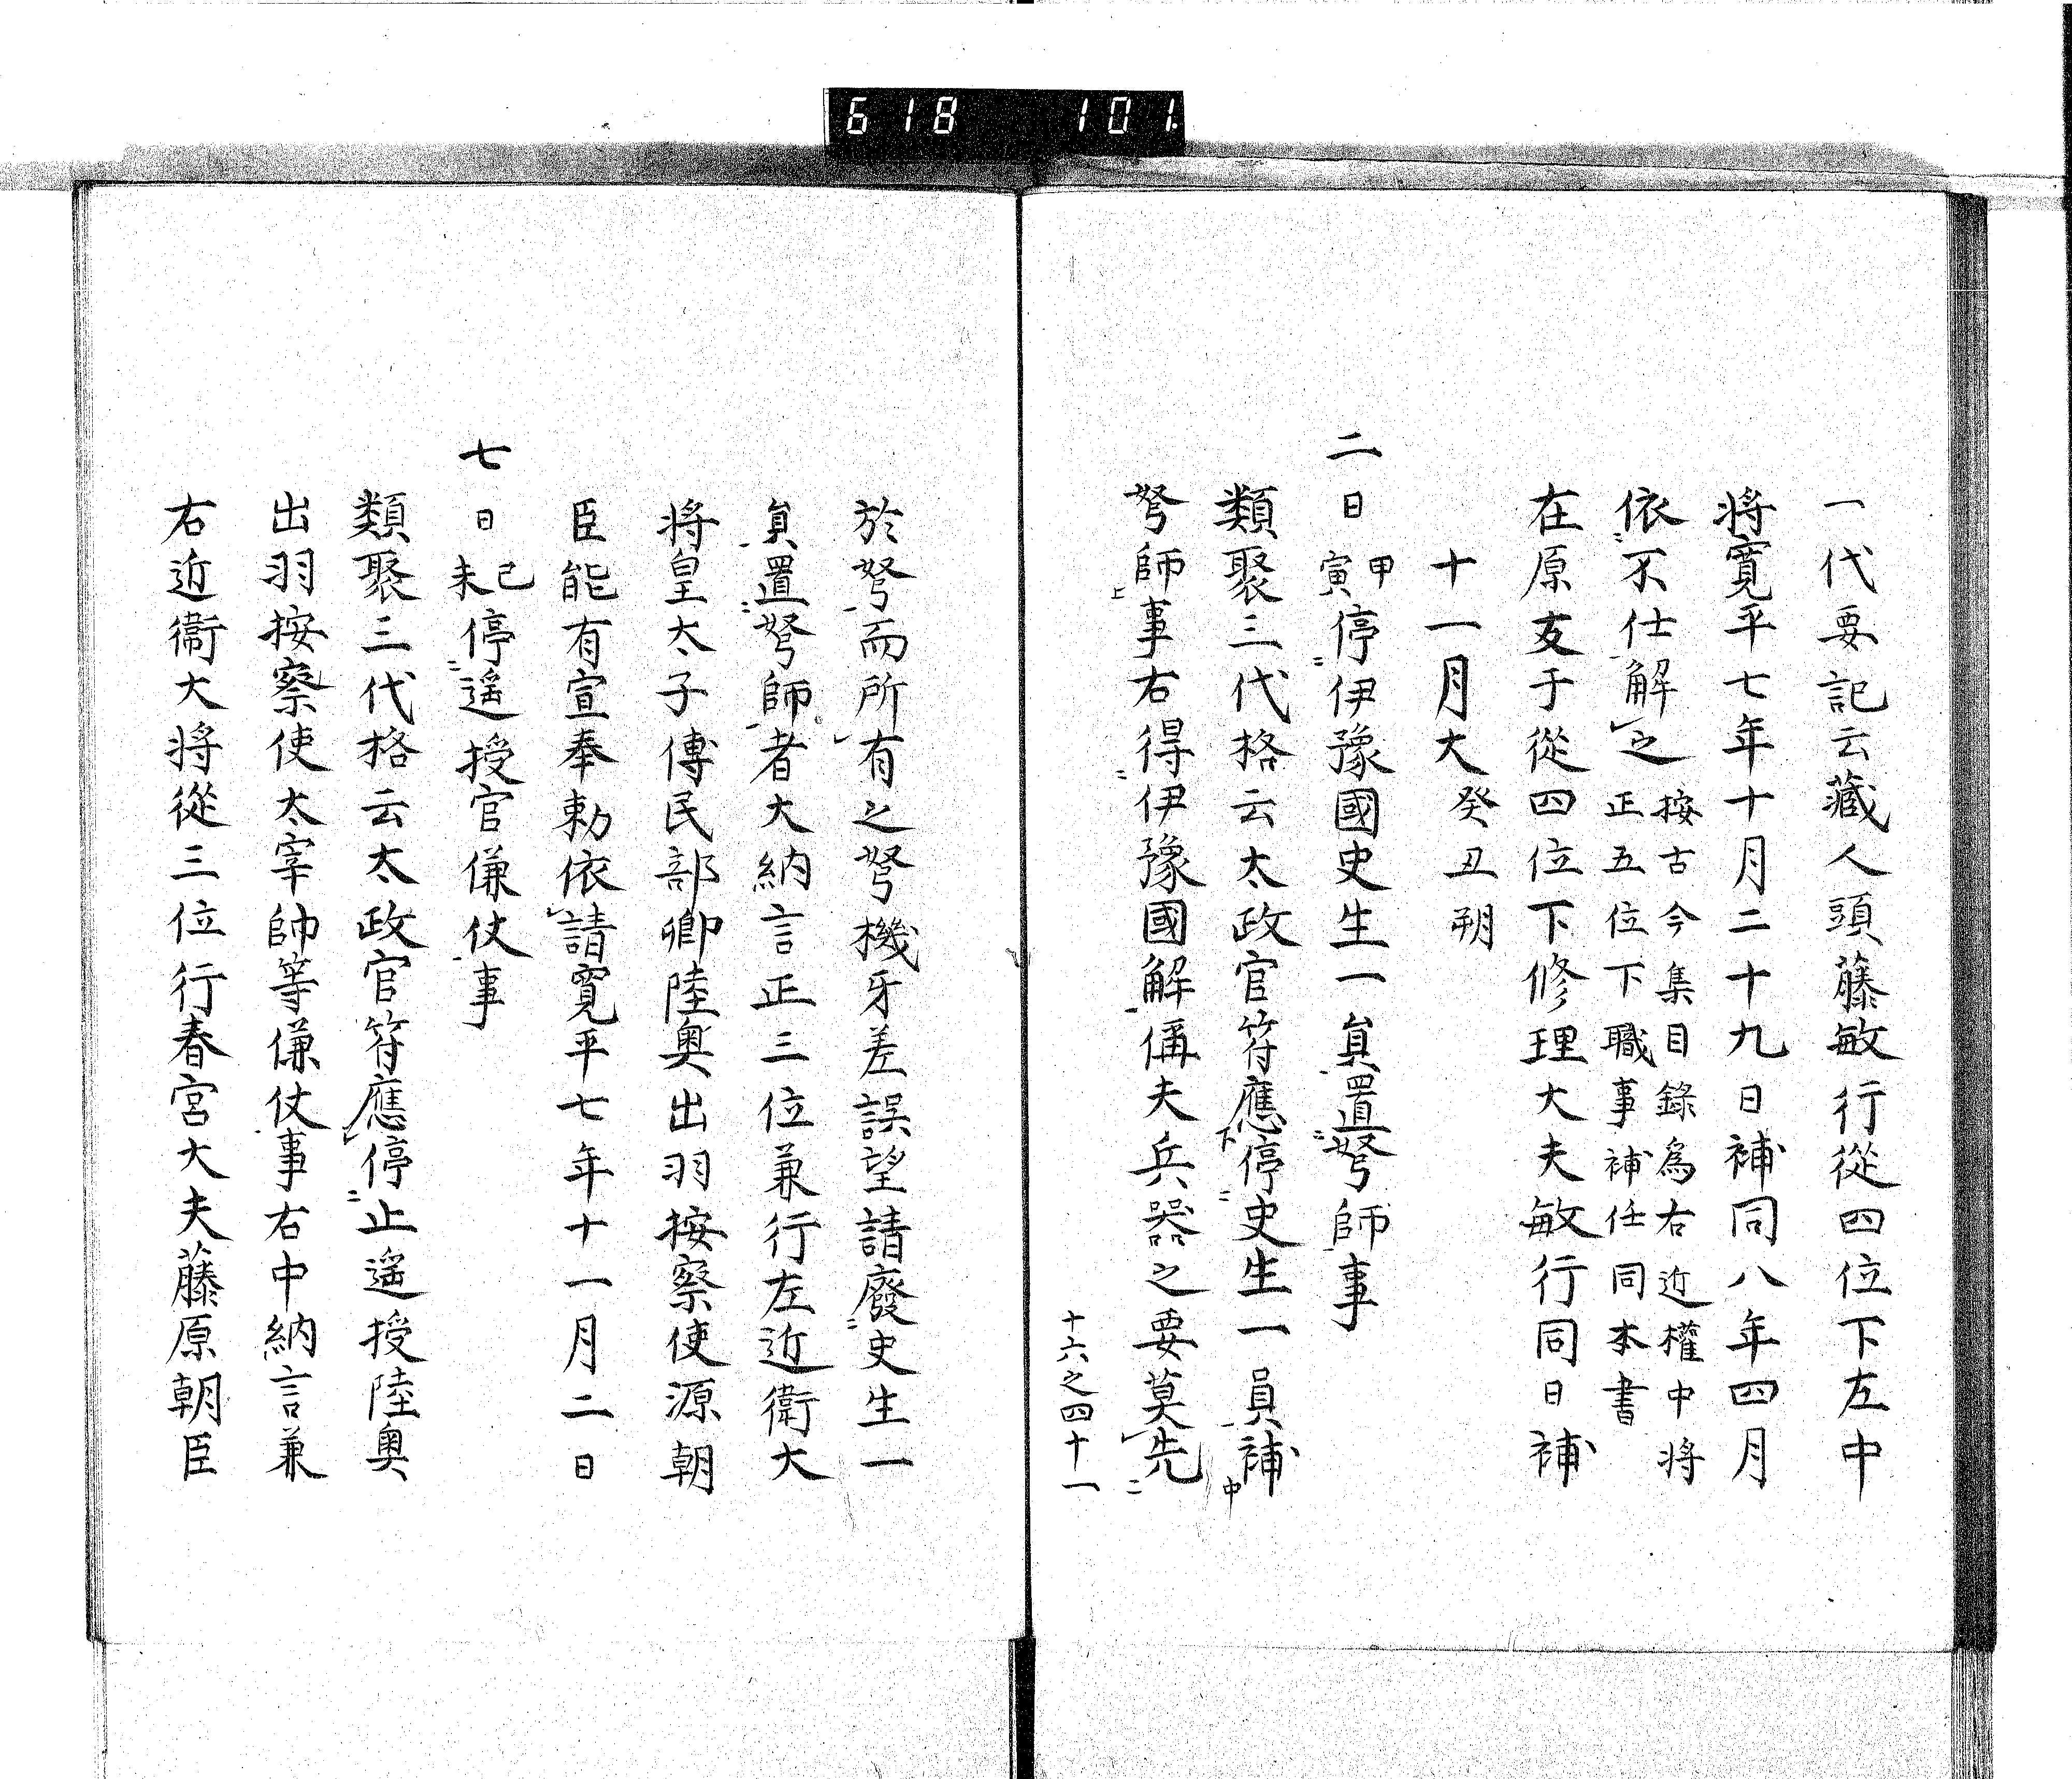 618 101
一代要記云藏人頭藤敏行從四位下左中
將寛平七年十月二十九日補同八年四月
依不仕解之
按古今集目錄為右近權中將
正五位下職事補任同本書
在原友于從四位下修理大夫敏行同日補
十一月大癸丑朔
二日甲寅停伊豫國史生一員置弩師事
類聚三代格云太政官符應停史生一員補
弩師事右得伊豫國解偁夫兵器之要莫先
十六之四十一
於弩而所有之弩機牙差誤望請廢史生一
員置弩師者大納言正三位兼行左近衛大
將皇太子傅民部卿陸奧出羽按察使源朝
臣能有宣奉勅依請寛平七年十一月二日
七日己未停遥授官傔仗事
類聚三代格云太政官符應停止遥授陸奧
出羽按察使太宰帥等傔仗事右中納言兼
右近衞大將從三位行春宮大夫藤原朝臣